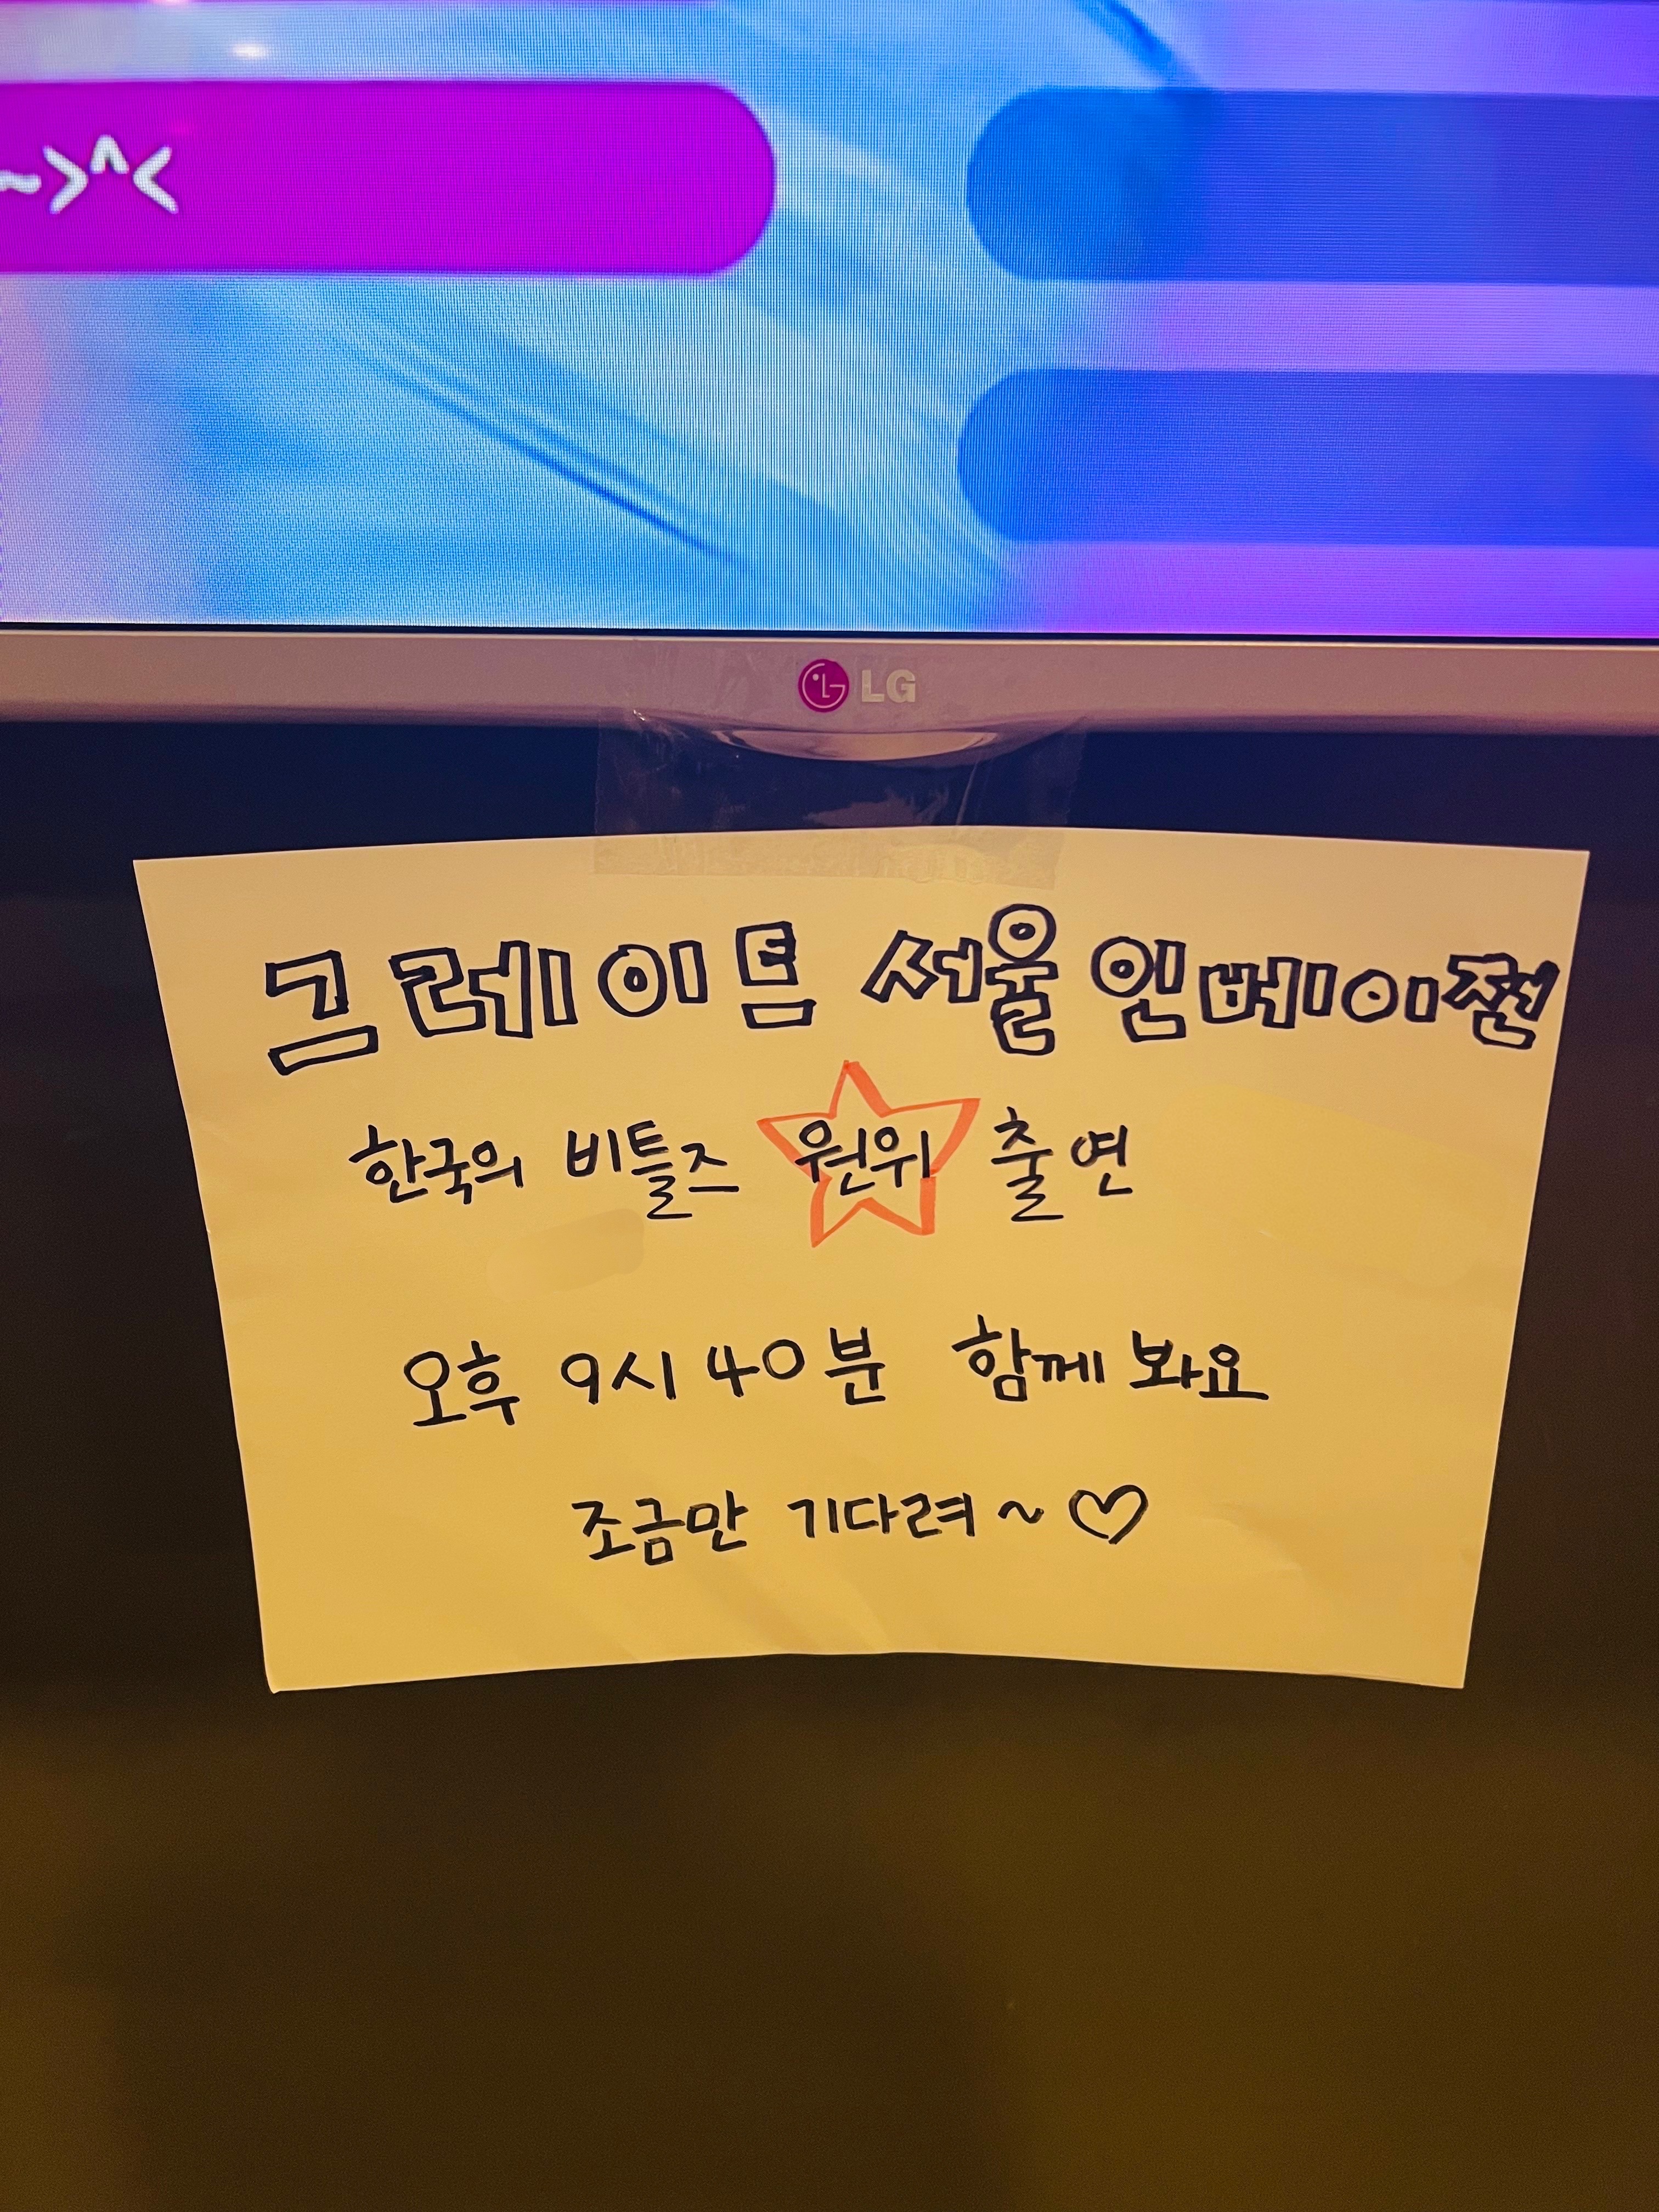 ~>^<
LG
그레이트 서울 인베이젼
한국의 비틀즈 원위 출연
오후 9시 40분 함께 봐요
조금만 기다려~♡